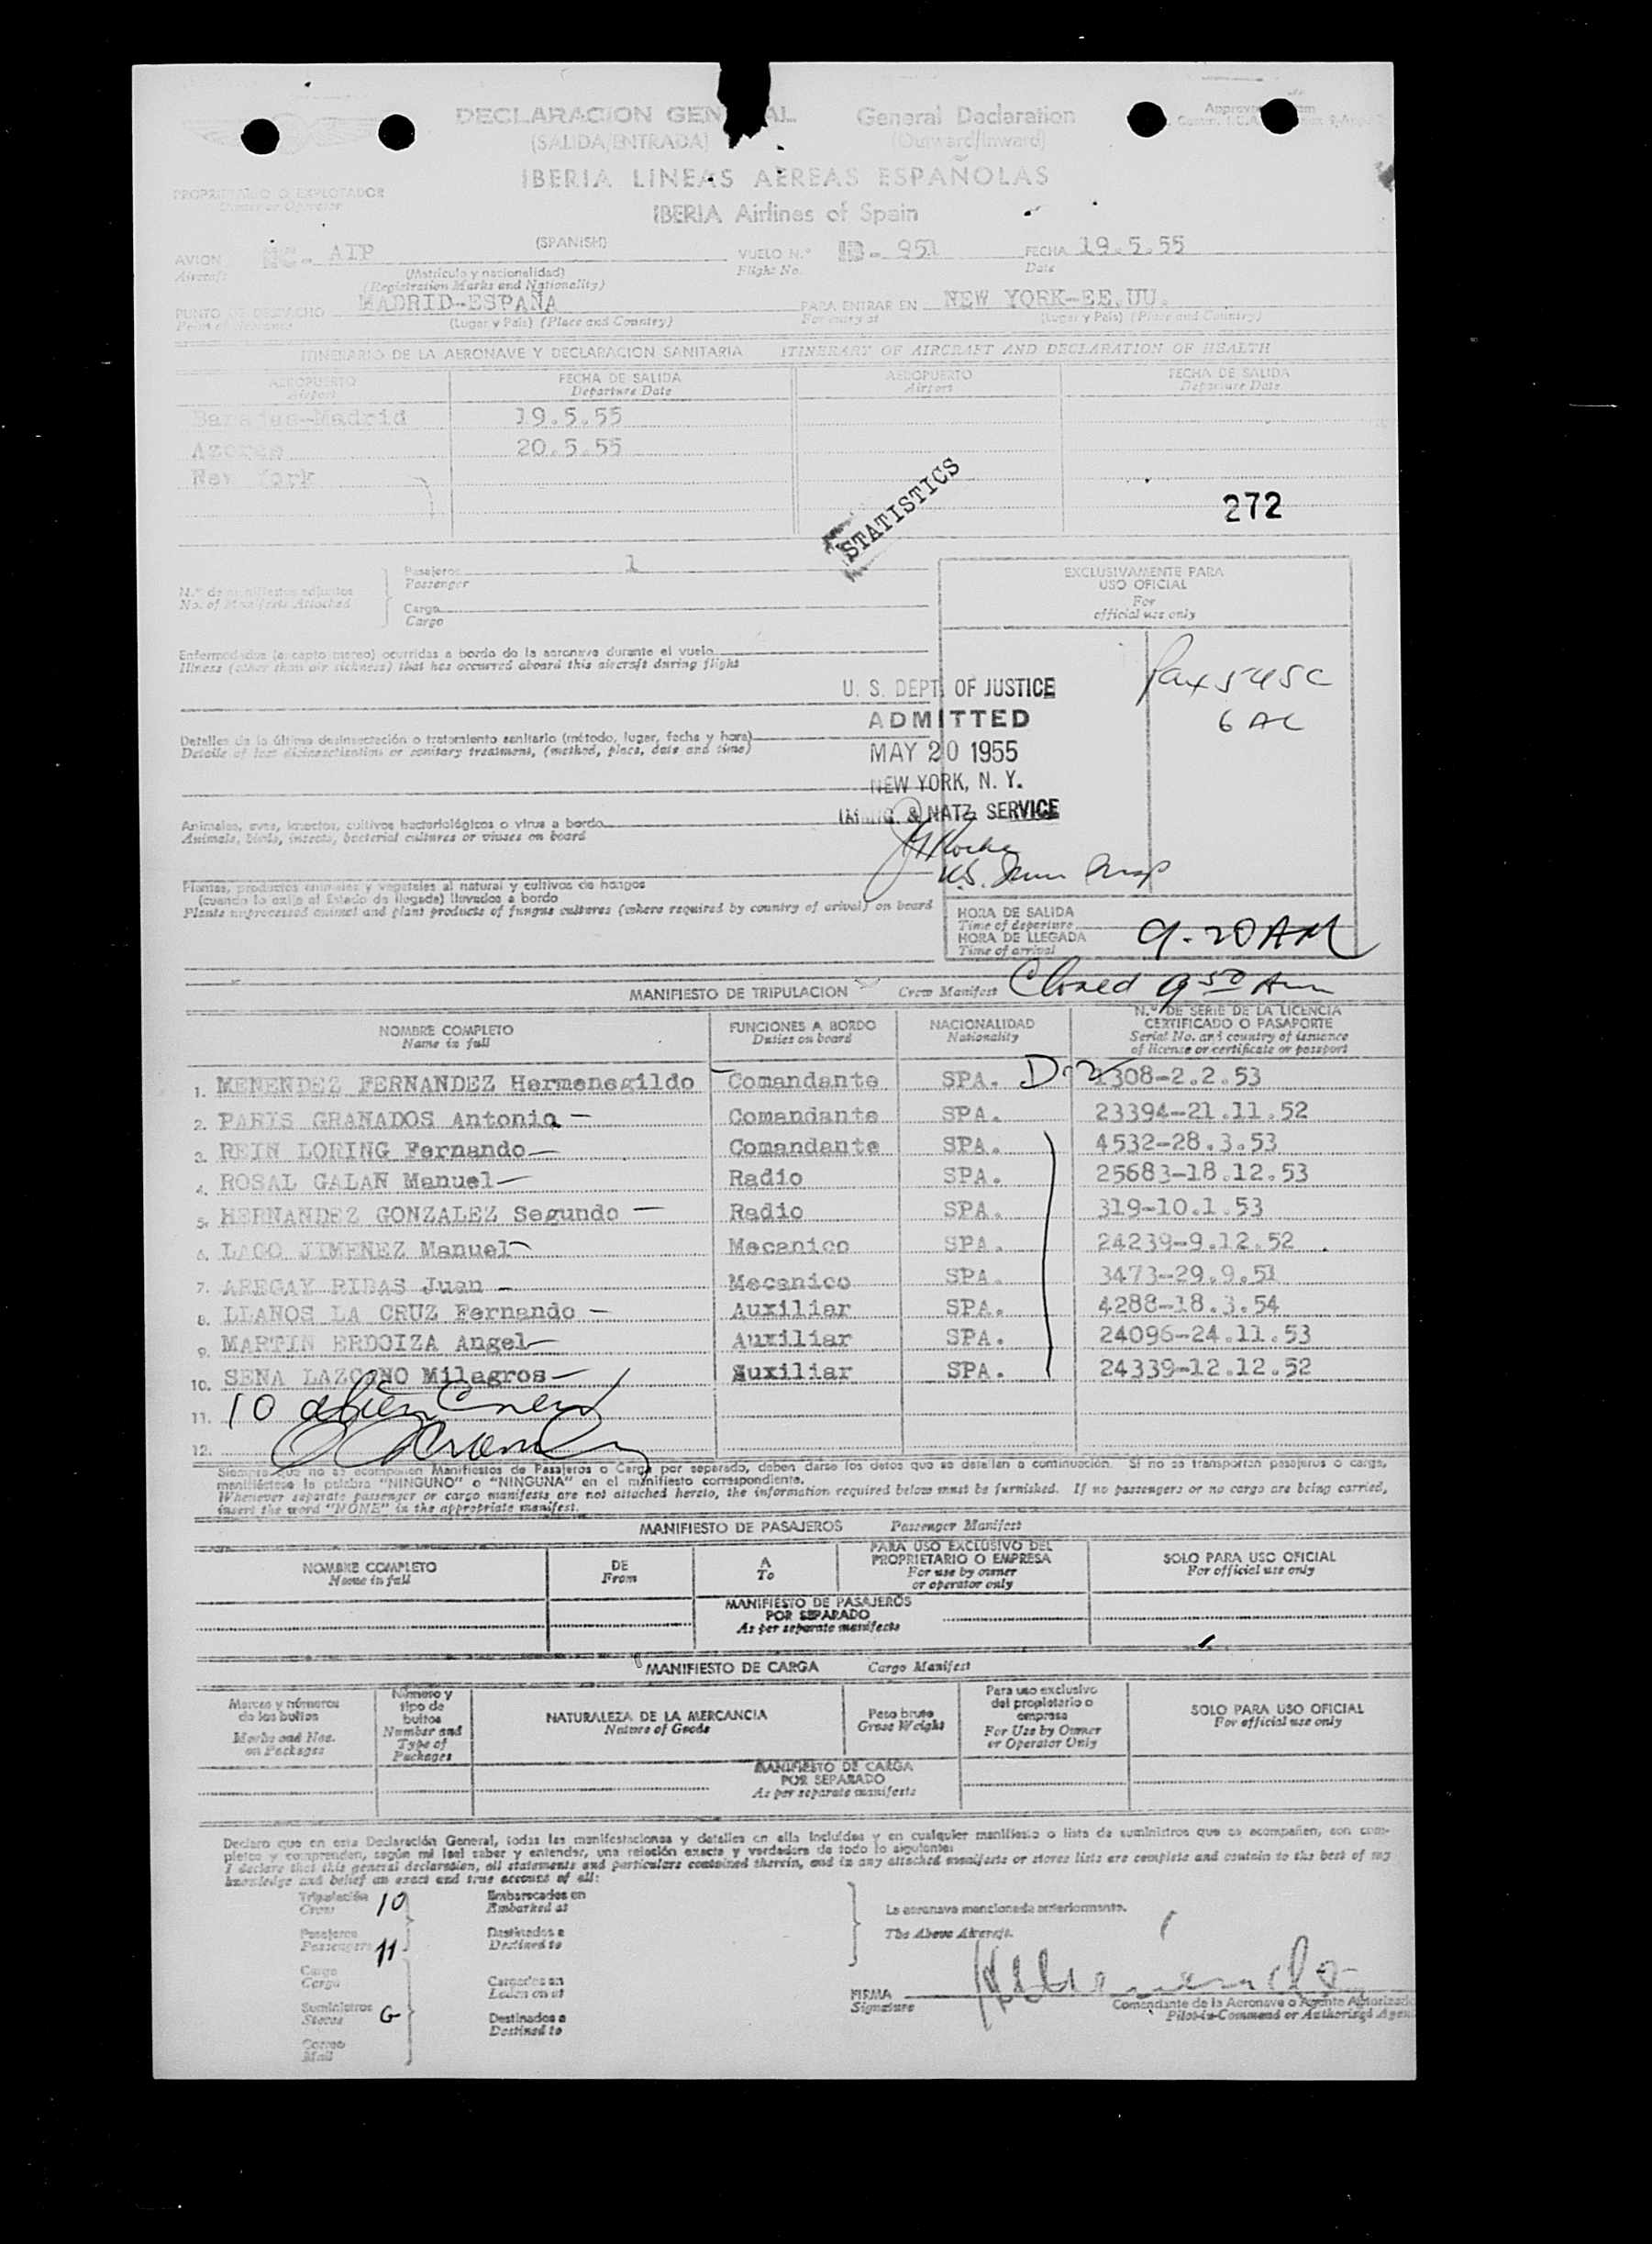 DECLARACION GENERAL General Declaration
(SALIDA/ENTRADA) (Outward/Inward)
IBERIA LINEAS AEREAS ESPAÑOLAS
PROPRIETARIO O EXPLOTADOR
Owner or Operator
IBERIA Airlines of Spain
(SPANISH)
AVION EC- ATP VUELO N.º IB- 951 FECHA 19.5.55
Aircraft (Matricula y nacionalidad) Flight No. Date
(Registration Marks and Nationality)
PUNTO DE DESPACHO MADRID-ESPAÑA PARA ENTRAR EN NEW YORK-EE.UU.
(Lugar y País) (Place and Country) For entry at (Lugar y País) (Place and Country)
ITINERARIO DE LA AERONAVE Y DECLARACION SANITARIA ITINERARY OF AIRCRAFT AND DECLARATION OF HEALTH
AEROPUERTO FECHA DE SALIDA AEROPUERTO FECHA DE SALIDA
Airport Departure Date Airport Departure Date
Barajas-Madrid 19.5.55
Azores 20.5.55
New York
STATISTICS
272
N.º de manifiestos adjuntos
No. of Manifests Attached
Pasajeros 1
Passenger
Cargo
Cargo
EXCLUSIVAMENTE PARA
USO OFICIAL
For
official use only
Enfermedades (excepto mareo) ocurridas a bordo de la aeronave durante el vuelo
Illness (other than air sickness) that has occurred aboard this aircraft during flight
6 AC
U. S. DEPT. OF JUSTICE
ADMITTED
MAY 20 1955
NEW YORK, N. Y.
IMMIG. & NATZ. SERVICE
Detalles de la última desinsectación o tratamiento sanitario (método, lugar, fecha y hora)
Details of last disinsectization or sanitary treatment, (method, place, date and time)
Animales, aves, insectos, cultivos bacteriológicos o virus a bordo
Animals, birds, insects, bacterial cultures or viruses on board
Plantas, productos animales y vegetales al natural y cultivos de hongos
(cuando lo exija el Estado de llegada) llevados a bordo
Plants unprocessed animal and plant products of fungus cultures (where required by country of arival) on board
HORA DE SALIDA
Time of departure
HORA DE LLEGADA 9.20 AM
Time of arrival
MANIFIESTO DE TRIPULACION Crew Manifest Closed 9 50 Am
NOMBRE COMPLETO FUNCIONES A BORDO NACIONALIDAD N.º DE SERIE DE LA LICENCIA
Name in full Duties on board Nationality CERTIFICADO O PASAPORTE
Serial No. and country of issuance
of license or certificate or passport
1. MENENDEZ FERNANDEZ Hermenegildo Comandante SPA. 308-2.2.53
2. PARIS GRANADOS Antonio - Comandante SPA. 23394-21.11.52
3. REIN LORING Fernando - Comandante SPA. 4532-28.3.53
4. ROSAL GALAN Manuel - Radio SPA. 25683-18.12.53
5. HERNANDEZ GONZALEZ Segundo - Radio SPA. 319-10.1.53
6. LAGO JIMENEZ Manuel Mecanico SPA. 24239-9.12.52
7. AREGAY RIBAS Juan - Mecanico SPA. 3473-29.9.51
8. LLANOS LA CRUZ Fernando - Auxiliar SPA. 4288-18.3.54
9. MARTIN ERDOIZA Angel - Auxiliar SPA. 24096-24.11.53
10. SENA LAZCANO Milagros - Auxiliar SPA. 24339-12.12.52
11. 10 alien Crew
12.
Siempre que no se acompañen Manifiestos de Pasajeros o Carga por separado, deben darse los datos que se detallan a continuación. Si no se transportan pasajeros o carga,
manifiéstese la palabra "NINGUNO" o "NINGUNA" en el manifiesto correspondiente.
Whenever separate passenger or cargo manifests are not attached hereto, the information required below must be furnished. If no passengers or no cargo are being carried,
insert the word "NONE" in the appropriate manifest.
MANIFIESTO DE PASAJEROS Passenger Manifest
NOMBRE COMPLETO DE A PARA USO EXCLUSIVO DEL SOLO PARA USO OFICIAL
Name in full From To PROPRIETARIO O EMPRESA For official use only
For use by owner
or operator only
MANIFIESTO DE PASAJEROS
POR SEPARADO
As per separate manifests
MANIFIESTO DE CARGA Cargo Manifest
Marcas y números
de los bultos
Marks and Nos.
on Packages
Número y
tipo de
bultos
Number and
Type of
Packages
NATURALEZA DE LA MERCANCIA
Nature of Goods
Peso bruto
Gross Weight
Para uso exclusivo
del propietario o
empresa
For Use by Owner
or Operator Only
SOLO PARA USO OFICIAL
For official use only
MANIFIESTO DE CARGA
POR SEPARADO
As per separate manifests
Declaro que en esta Declaración General, todas las manifestaciones y detalles en ella incluídos y en cualquier manifiesto o lista de suministros que se acompañen, son com-
pletos y comprenden, según mi leal saber y entender, una relación exacta y verdadera de todo lo siguiente:
I declare that this general declaration, all statements and particulars contained therein, and in any attached manifests or stores lists are complete and contain to the best of my
knowledge and belief an exact and true account of all:
Tripulación 10 Embarcados en
Crew Embarked at
La aeronave mencionada anteriormente.
Pasajeros Destinados a The Above Aircraft.
Passengers 11 Destined to
Carga Cargados en
Cargo Laden on at
FIRMA
Signature
Comandante de la Aeronave o Agente Autorizado
Pilot-in-Command or Authorised Agent
Suministros G Destinados a
Stores Destined to
Correo
Mail